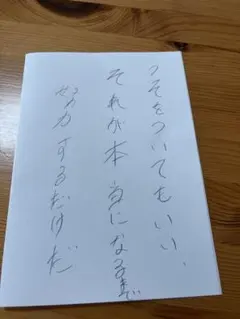 うそをついてもいい、
それが本当になるまで
努力するだけだ